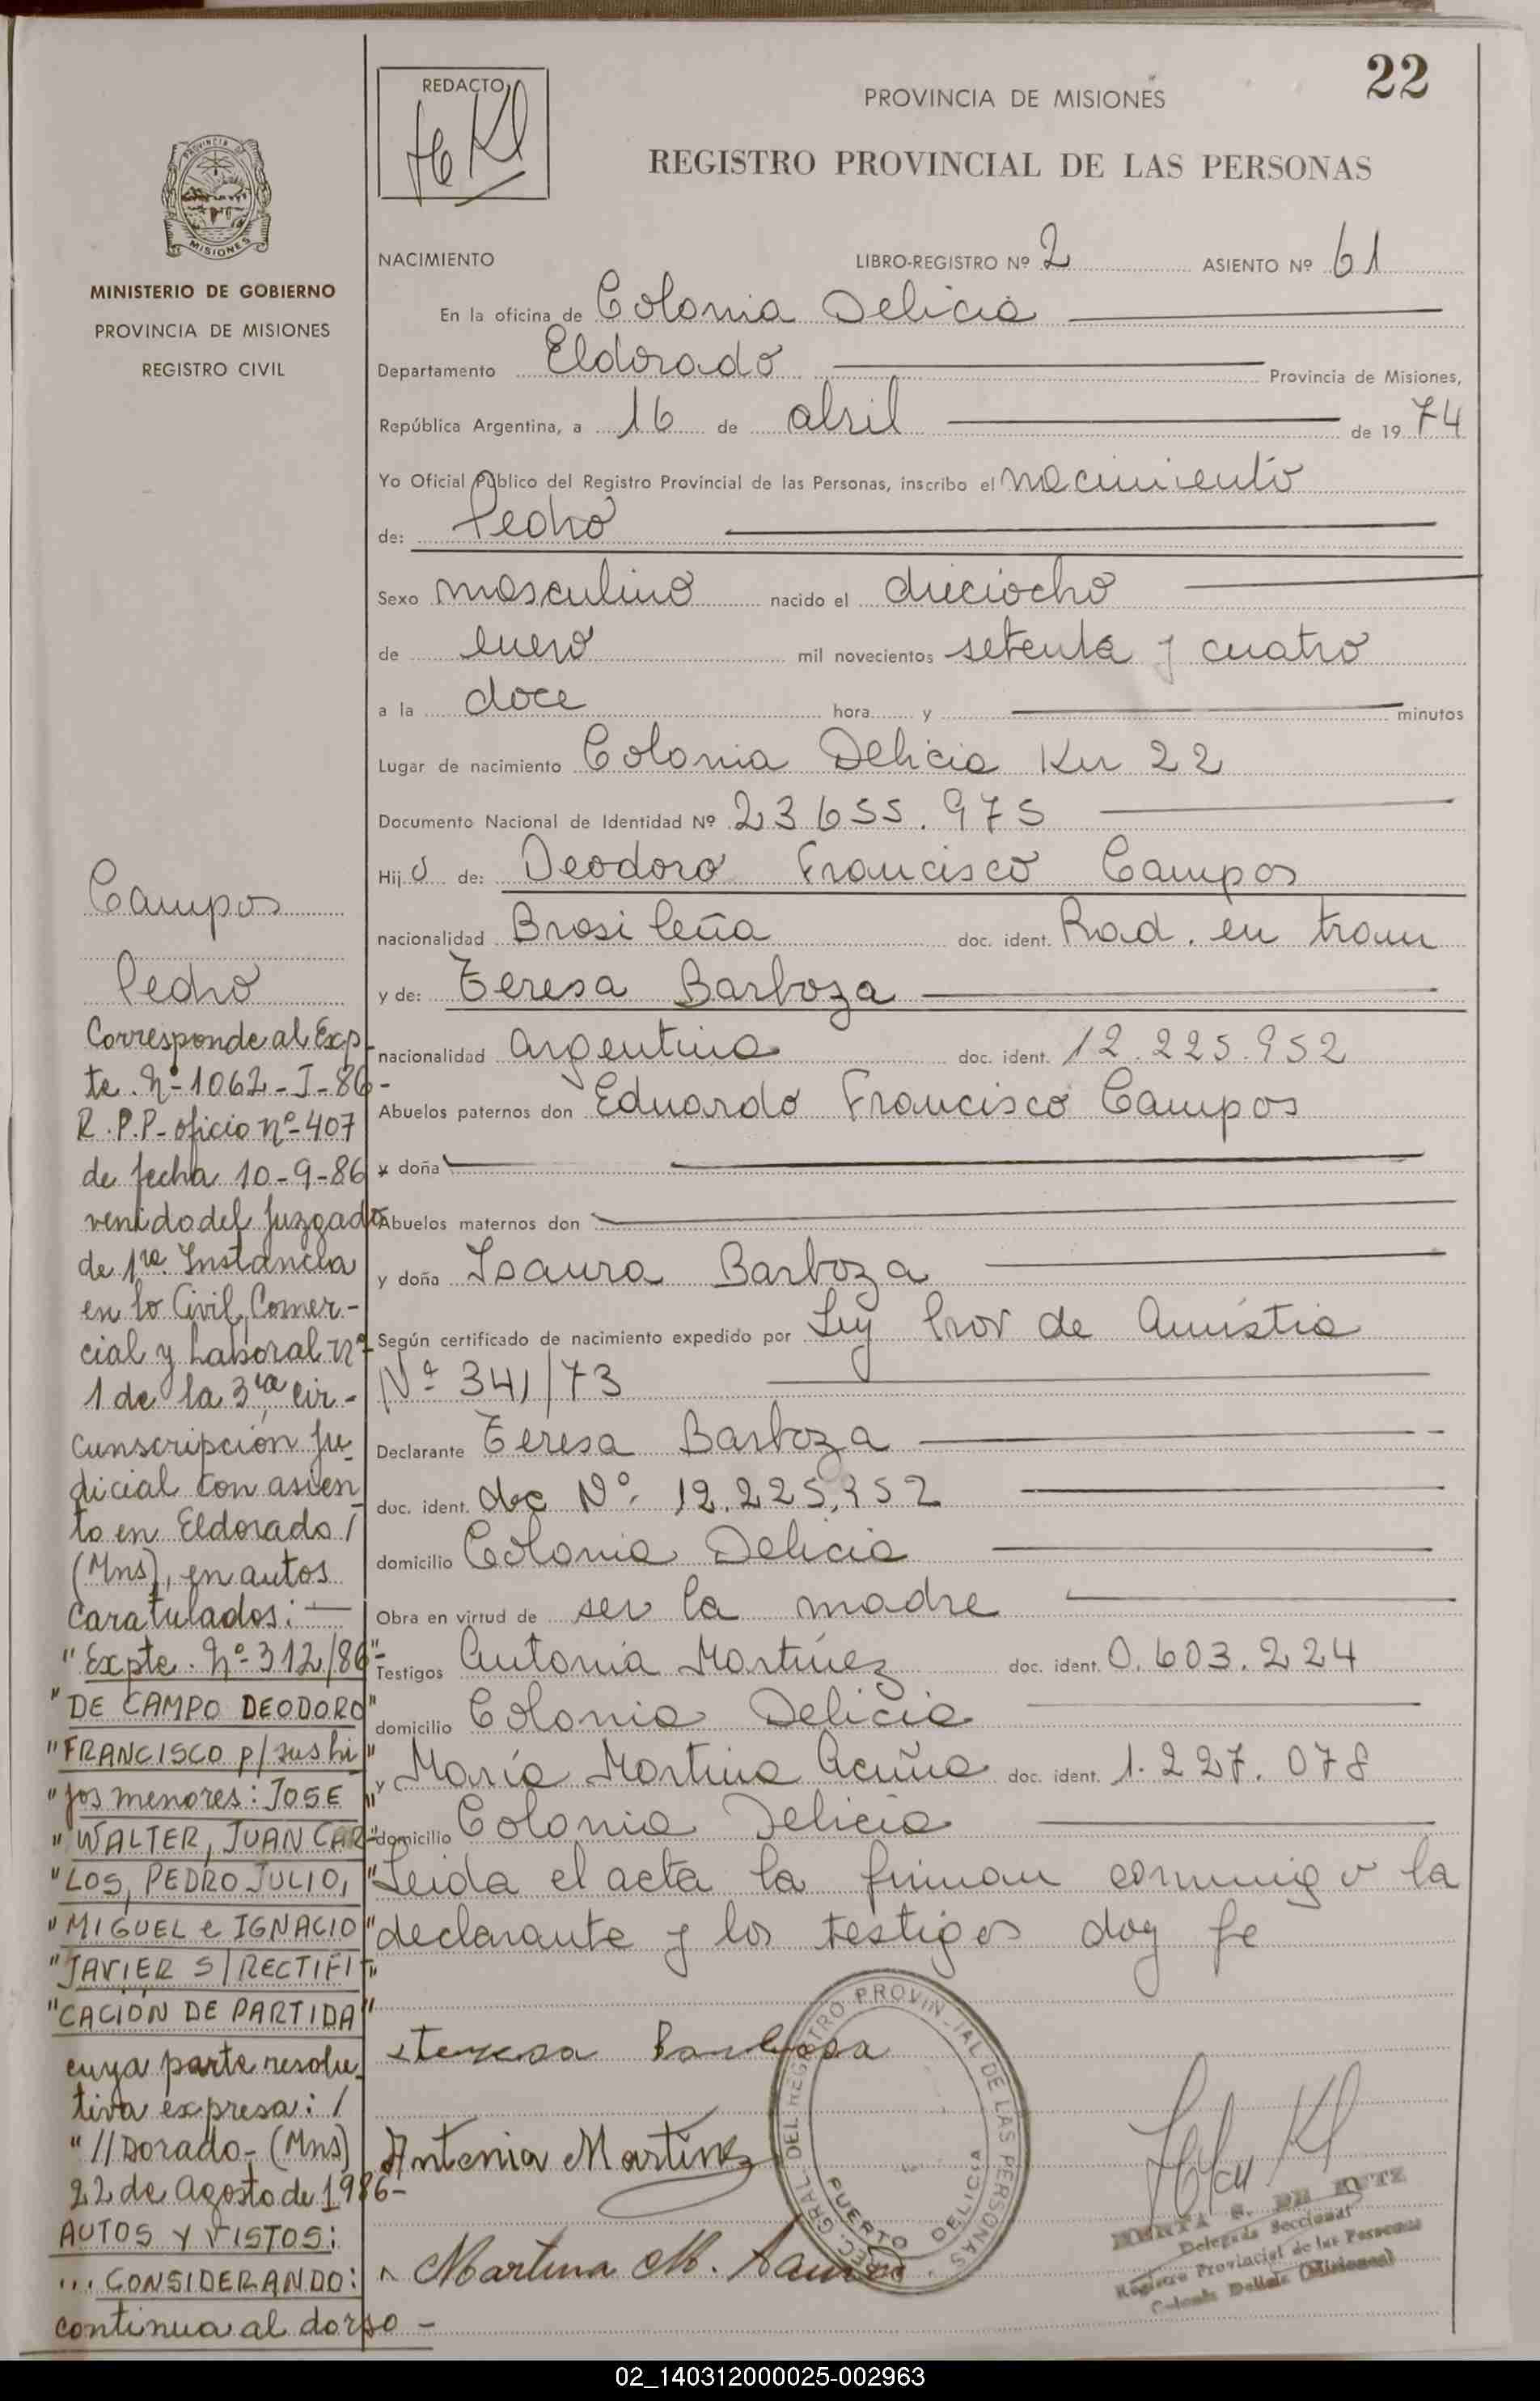 22
REDACTO
PROVINCIA DE MISIONES
REGISTRO PROVINCIAL DE LAS PERSONAS
PROVINCIA DE MISIONES
MINISTERIO DE GOBIERNO
PROVINCIA DE MISIONES
REGISTRO CIVIL
NACIMIENTO LIBRO-REGISTRO Nº 2 ASIENTO Nº 61
En la oficina de Colonia Delicia
Departamento Eldorado Provincia de Misiones,
República Argentina, a 16 de abril de 1974
Yo Oficial Público del Registro Provincial de las Personas, inscribo el nacimiento
de: Pedro
Sexo masculino nacido el dieciocho
de enero mil novecientos setenta y cuatro
a la doce hora y minutos
Lugar de nacimiento Colonia Delicia Km 22
Documento Nacional de Identidad Nº 23655.975
Hijo de: Deodoro Francisco Campos
nacionalidad Brasileña doc. ident. Rad. en tram
y de: Teresa Barboza
nacionalidad argentina doc. ident. 12.225.952
Abuelos paternos don Eduardo Francisco Campos
y doña
Abuelos maternos don
y doña Isaura Barboza
Según certificado de nacimiento expedido por Ley Prov de Amistia
Nº 341/73
Declarante Teresa Barboza
doc. ident. doc Nº 12.225.952
domicilio Colonia Delicia
Obra en virtud de ser la madre
Testigos Antonia Martinez doc. ident. 0.603.224
domicilio Colonia Delicia
y María Martina Acuña doc. ident. 1.227.078
domicilio Colonia Delicia
Leida el acta la firman conmigo la
declarante y los testigos doy fe
Teresa Barboza
Antonia Martinez
Martina M. Acuña
DEL REGISTRO PROVINCIAL DE LAS PERSONAS
PUERTO DELICIA
Delegada Seccional
Registro Provincial de las Personas
Colonia Delicia (Misiones)
Campos
Pedro
Corresponde al Exp-
te. Nº 1062-J-86-
R.P.P-oficio nº 407
de fecha 10-9-86
venido del Juzgado
de 1ra. Instancia
en lo Civil, Comer-
cial y Laboral nº
1 de la 3ra cir-
cunscripción Ju-
dicial con asien
to en Eldorado /
(Mns), en autos
caratulados: —
"Expte. Nº 312/86-"
"DE CAMPO DEODORO"
"FRANCISCO p/sus hi"
"jos menores: JOSE"
"WALTER, JUAN CAR-"
"LOS, PEDRO JULIO,"
"MIGUEL e IGNACIO"
"JAVIER S/RECTIFI-"
"CACIÓN DE PARTIDA"
cuya parte resolu-
tiva expresa: /
"//Dorado-(Mns)
22 de Agosto de 1986-
AUTOS Y VISTOS:
... CONSIDERANDO:
continua al dorso-
02_140312000025-002963